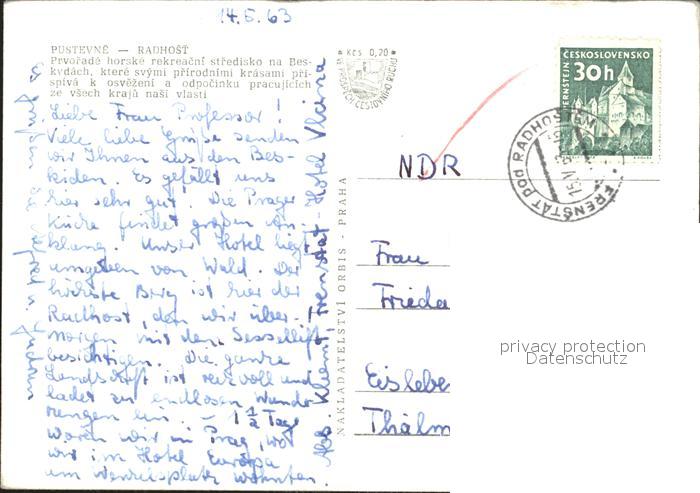 14.5.63
PUSTEVNĚ — RADHOŠŤ
Prvořadé horské rekreační středisko na Bes-
kydách, které svými přírodními krásami při-
spívá k osvěžení a odpočinku pracujících
ze všech krajů naší vlasti
Liebe Frau Professor!
Viele liebe Grüße senden
wir Ihnen aus den Bes-
kiden. Es gefällt uns
hier sehr gut. Die Prager
Küche findet großen An-
klang. Unser Hotel liegt
umgeben von Wald. Der
höchste Berg ist hier der
Radhost, den wir über-
morgen mit dem Sessellift
besichtigen. Die ganze
Landschaft ist reizvoll und
ladet zu endlosen Wande-
rungen ein. – 1 1/2 Tage
waren wir in Prag, wo
wir im Hotel Europa
am Wenzelsplatz wohnten.
Abs. Klient, Frenštát - Hotel Vlčina
NAKLADATELSTVÍ ORBIS - PRAHA
Kčs 0,20
VE PROSPĚCH CESTOVNÍHO RUCHU
ČESKOSLOVENSKO
30h
PERNŠTEJN
FRENŠTÁT pod RADHOŠTĚM
NDR
Frau
Frieda
Eislebe
Thälm
privacy protection
Datenschutz